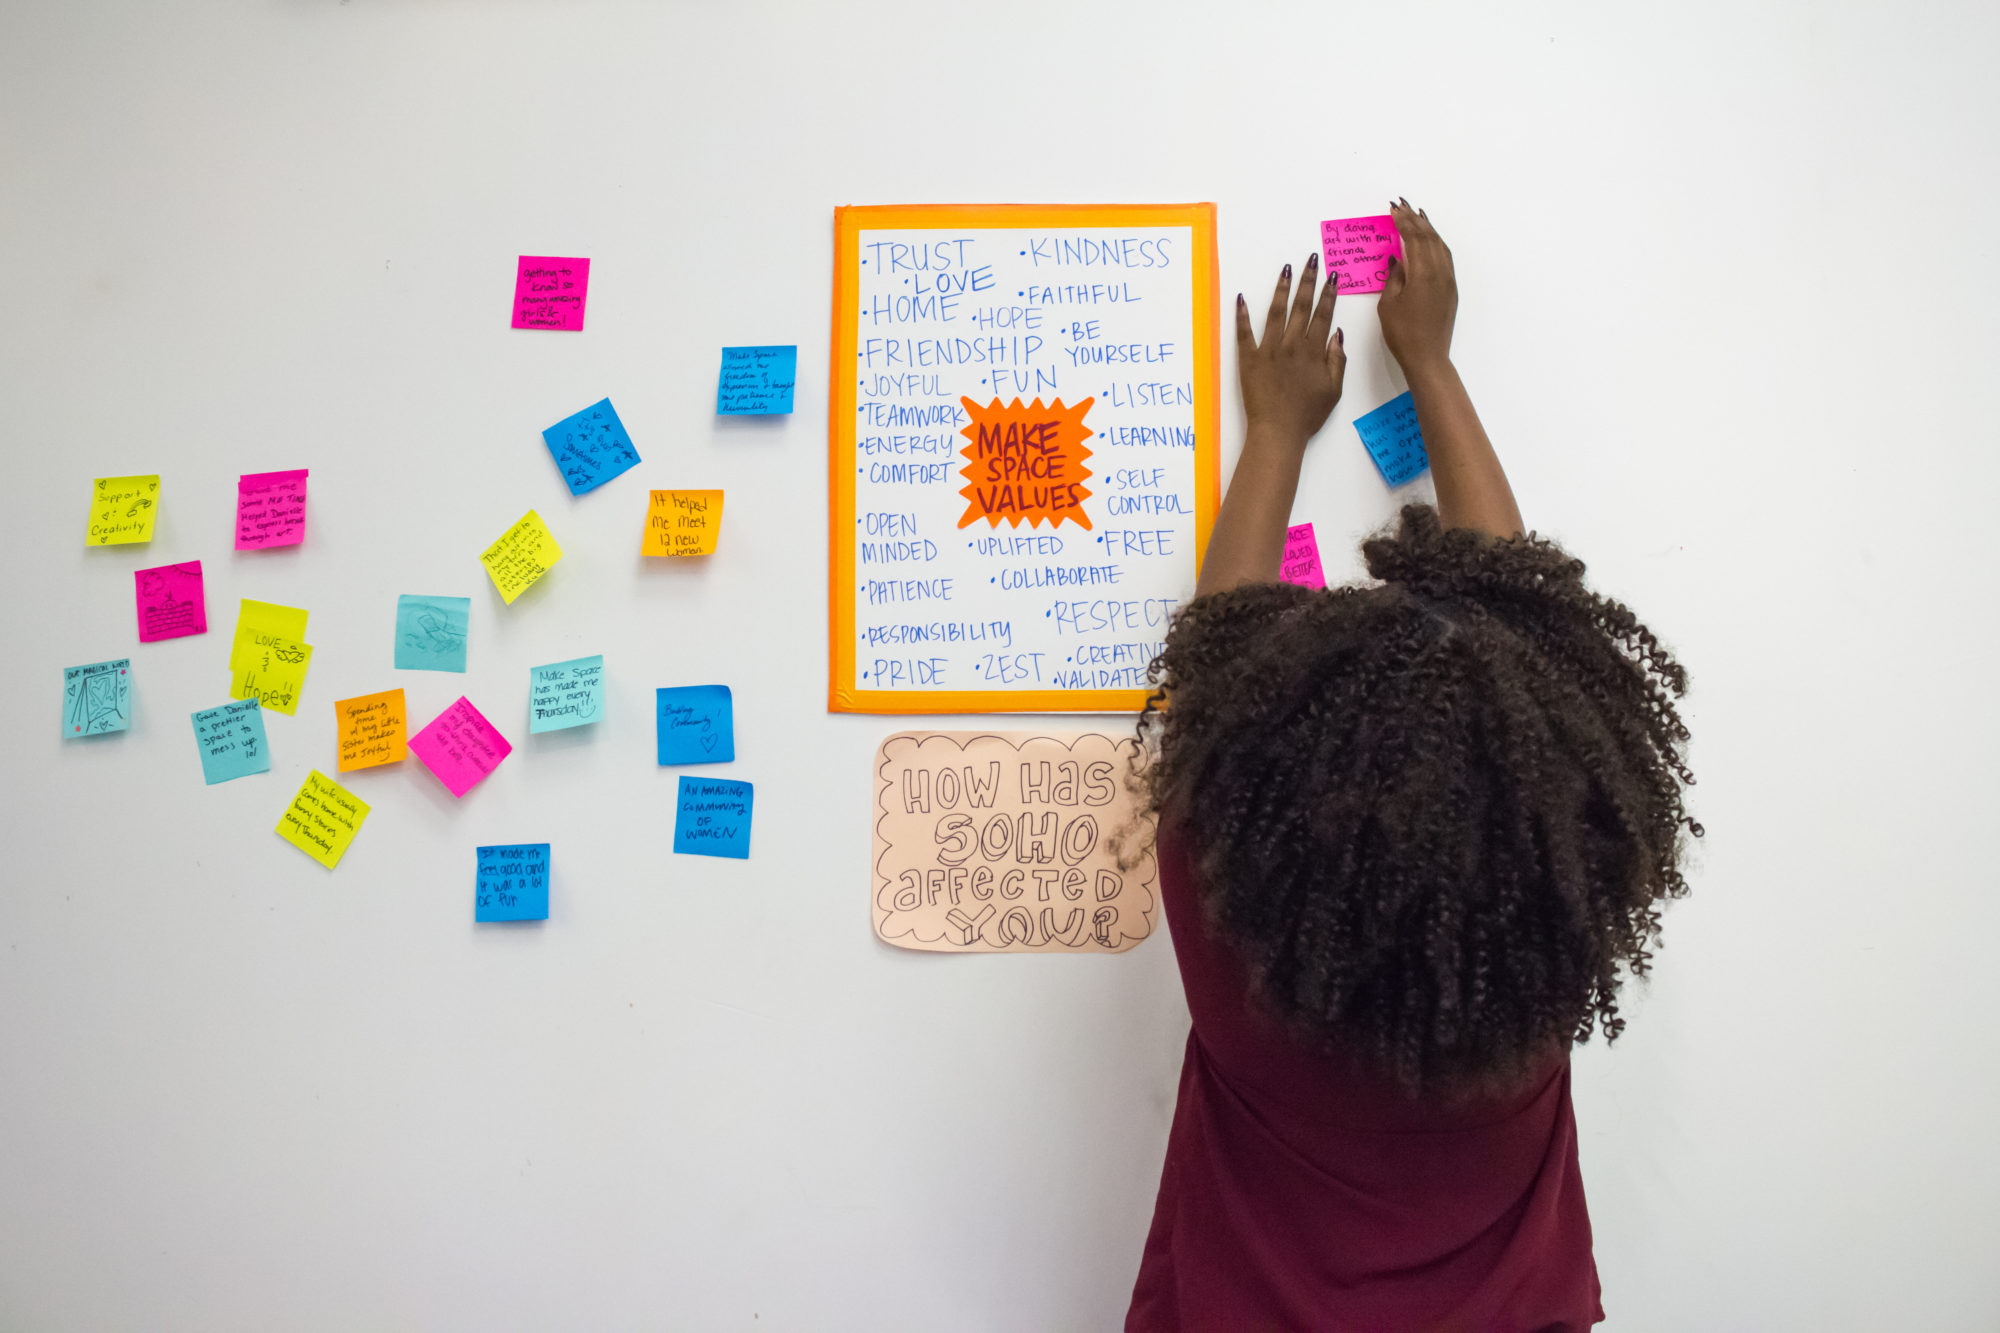 getting to
know so
many amazing
girls &
women!
Make Space
allowed me
freedom of
expression & taught
me patience &
Sometimes
Support
Creativity
some ME TIME
Helped Danielle
to express herself
through art.
It helped
me meet
12 new
women
That I get to
LOVE
Hope!!
OUR MAGICAL WORLD
Gave Danielle
a prettier
space to
mess up
lol
Spending
time
w/ my little
sister makes
me Joyful
Inspire
Make Space
has made me
happy every
Thursday!!
Building
Community!
AN AMAZING
COMMUNITY
OF
WOMEN
My wife usually
comes home with
funny stories
every Thursday.
It made me
feel good and
it was a lot
of fun
• TRUST
• KINDNESS
• LOVE
• HOME
• FAITHFUL
• HOPE
• BE
YOURSELF
• FRIENDSHIP
• JOYFUL
• FUN
• LISTEN
• TEAMWORK
• ENERGY
• LEARNING
• COMFORT
MAKE
SPACE
VALUES
• SELF
CONTROL
• OPEN
MINDED
• UPLIFTED
• FREE
• PATIENCE
• COLLABORATE
• RESPECT
• RESPONSIBILITY
• PRIDE
• ZEST
• CREATIVE
• VALIDATE
HOW HAS
SOHO
AFFECTED
YOU?
By doing
art with my
friends
and other